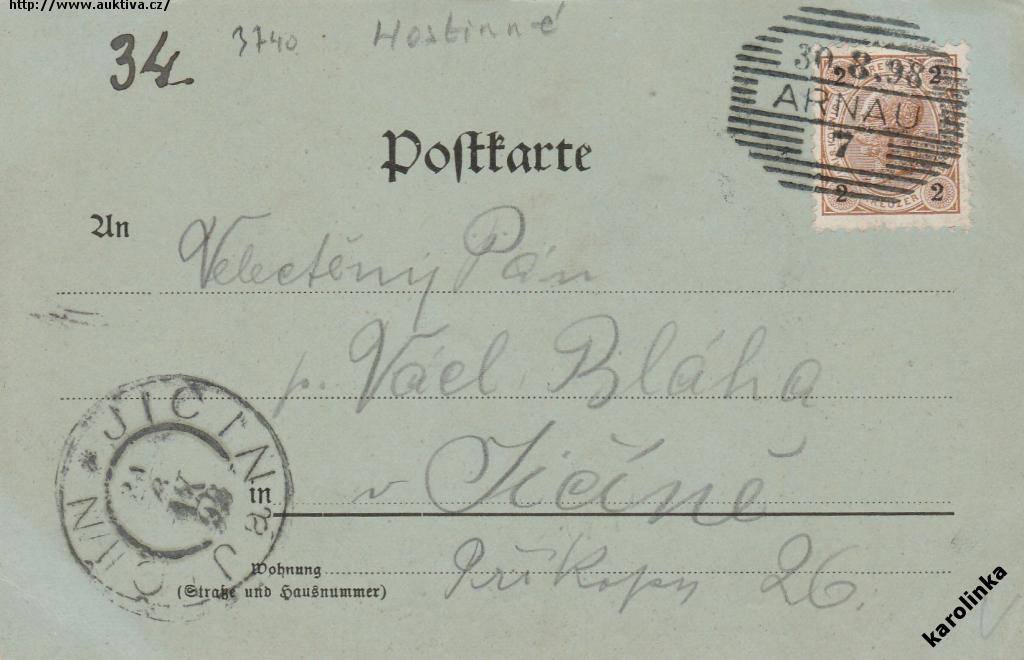 http://www.auktiva.cz/
34.
3740 Hostinné
30.8.98
ARNAU
7
2 2
2 2
Postkarte
An Velectěný Pán
p. Václ. Bláha
in v Jičíně
Wohnung
(Straße und Hausnummer)
Příkopy 26.
JIČÍN
JIČIN
karolinka